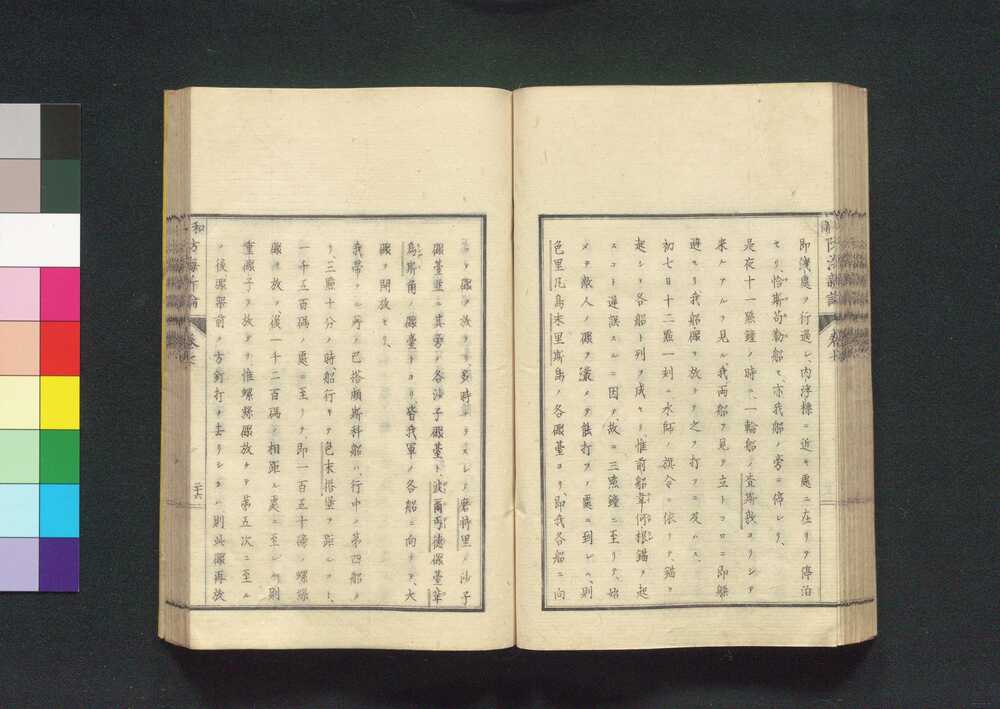 即淺處ヲ行過シ、内浮標ニ近キ處ニ在リテ停泊
セリ、恰斯苟勒船モ亦我船ノ旁ニ停レリ、
是夜十一點鐘ノ時ニ、一輪船ノ査斯我ヨリシテ
來ルアルヲ見ル我兩船ヲ見テ立トコロニ即躱
避セリ我船礮ヲ放テ之ヲ打ツニ及ハス、
初七日十二點一刻ニ水師ノ旗令ニ依リテ錨ヲ
起シテ各船ト列ヲ成セリ、惟前船韋伺根錨ヲ起
スコト遲誤スルニ因テ、故ニ三點鐘ニ至リテ、始
メテ敵人ノ礮ヲ メテ能打ツノ處ニ到レハ、則
色里凡烏末里斯烏ノ各礮臺ヨリ、即我各船ニ向
テ礮ヲ放テリ、多時ナラスシテ磨特里ノ沙子
礮臺並ニ其旁ノ各沙子礮臺ト、波爾丐德礮臺韋
烏斯角ノ礮臺トヨリ、皆我軍ノ各船ニ向テ、大
礮ヲ開放セリ、
我帶フル所ノ已搭廟斯科船ハ、行中ノ第四船ナ
リ、三點十分ノ時、船行キテ色末搭堡ヲ距ルコト、
一千五百碼ノ處ニ至リテ即一百五十磅ノ螺絲
礮ヲ放ツ、後一千二百碼ノ相距ル處ニ至レハ則
重礮子ヲ放テリ惟螺絲礮放テ第五次ニ至ル
ノ後、礮架前ノ方釘打チ去リシカハ則此礮再放
卷七
二十六